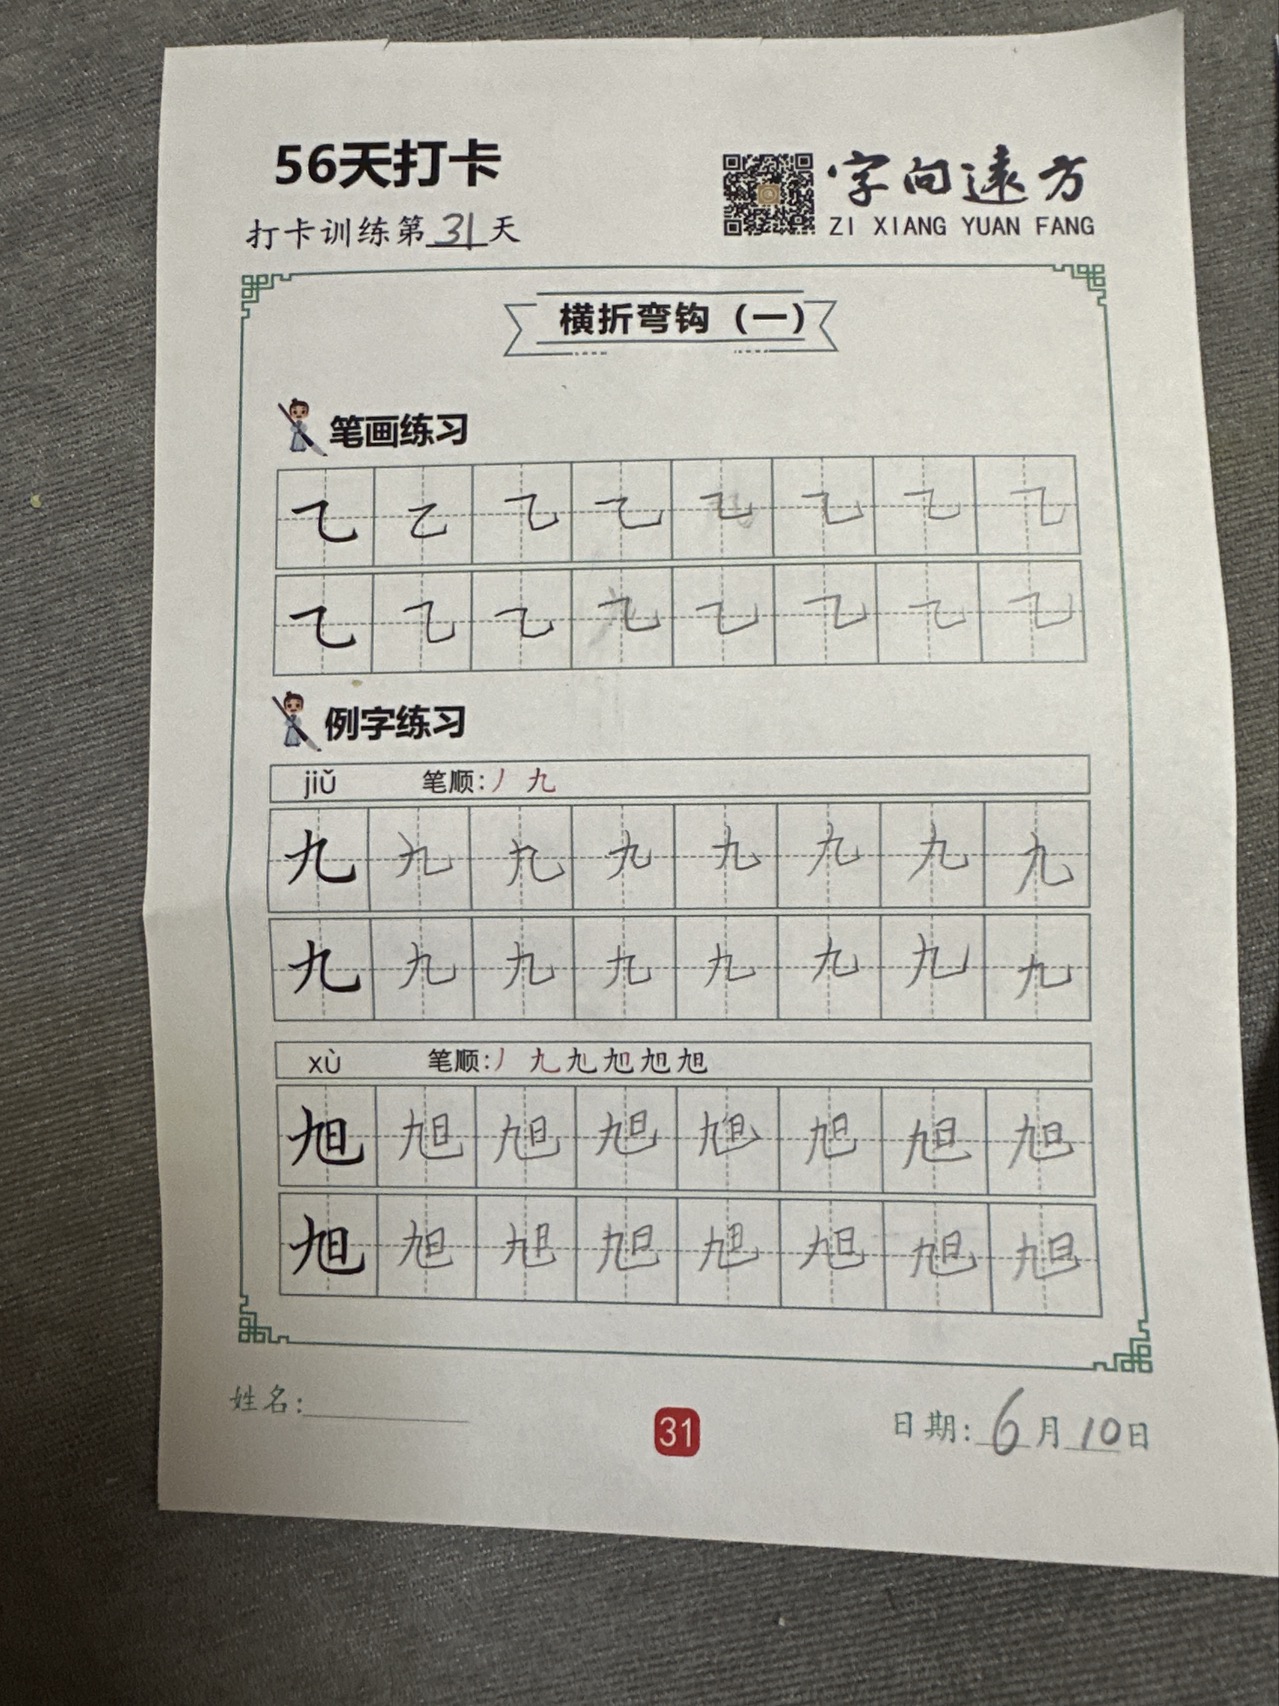 56天打卡
字向遠方
ZI XIANG YUAN FANG
打卡训练第31天
横折弯钩（一）
笔画练习
乁 乁 乁 乁 乁 乁 乁 乁
乁 乁 乁 九 乁 乁 乁 乁
例字练习
jiǔ 笔顺:丿 九
九 九 九 九 九 九 九 九
九 九 九 九 九 九 九 九
xù 笔顺:丿 九 九 旭 旭 旭
旭 旭 旭 旭 旭 旭 旭 旭
旭 旭 旭 旭 旭 旭 旭 旭
姓名:
31
日期:6月10日